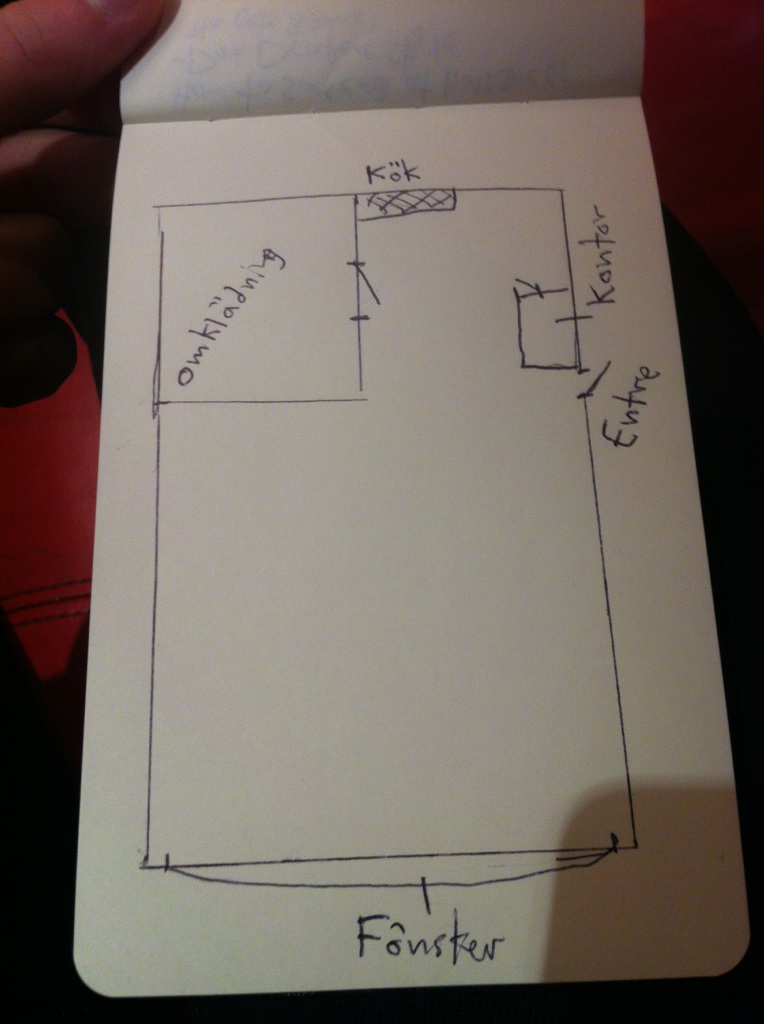 Kök
Omklädning
Kontor
Entre
Fönster